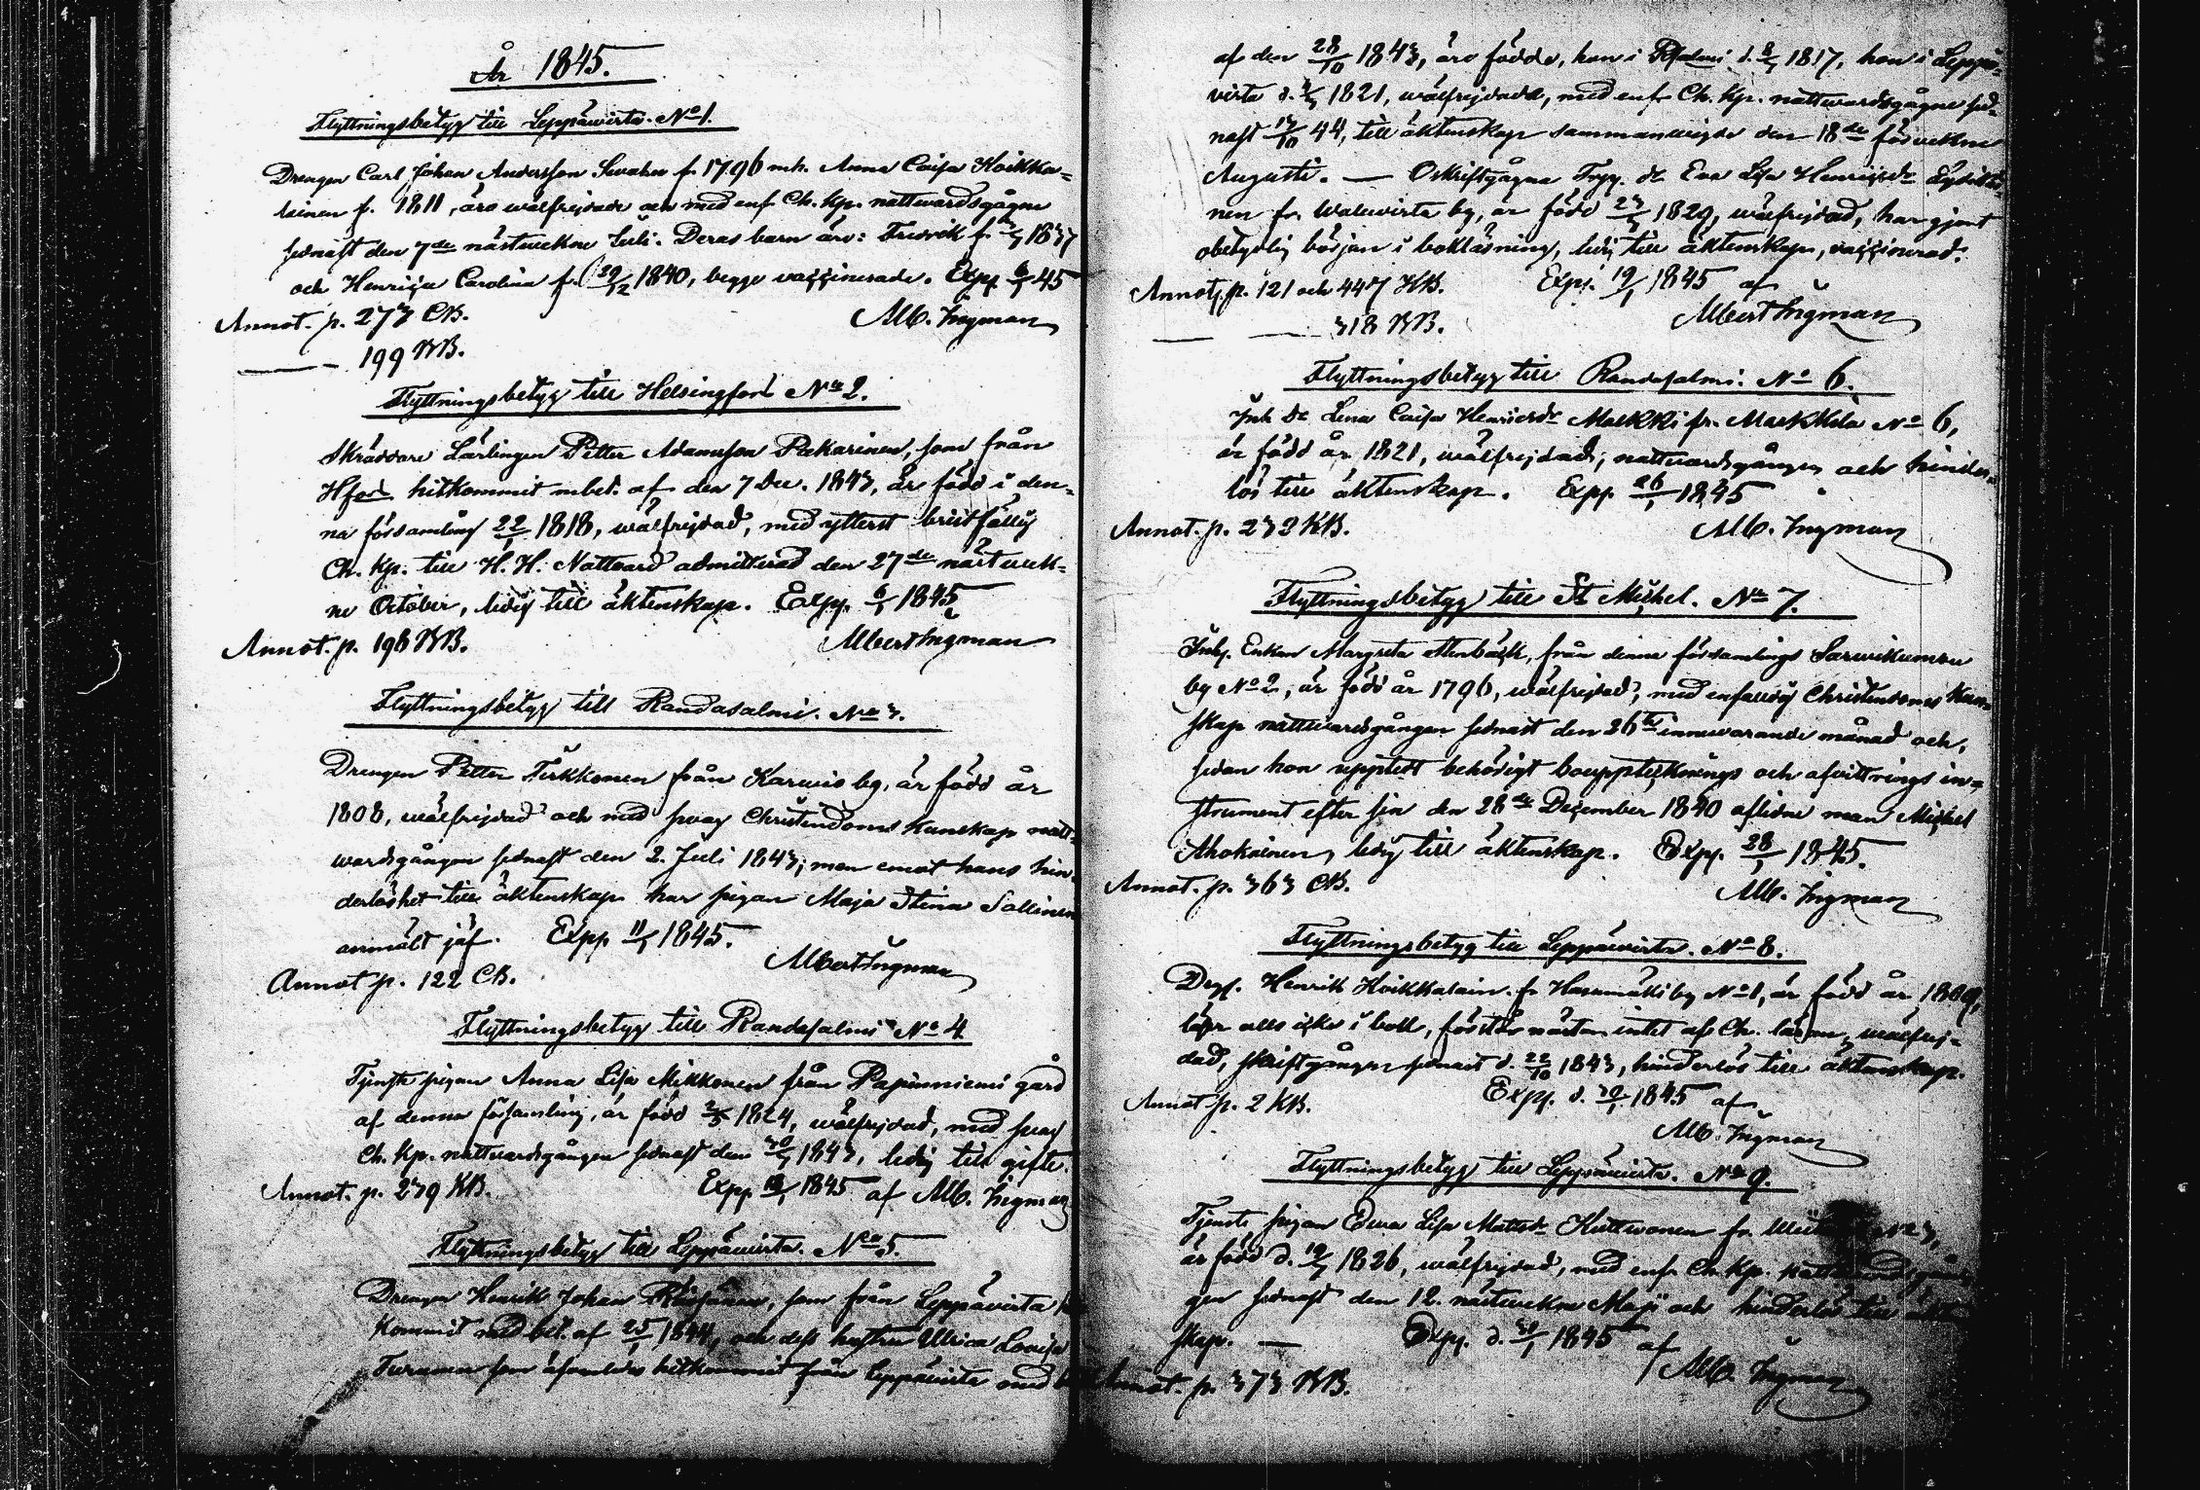 År 1845.
Flyttningsbetyg till Leppävirta. No 1.
Drengen Carl Johan Andersson f. 1796 m.h. Anna Caisa Koikka=
lainen f. 1811, äro wälfrejdade och med enf. Ch. Kp. nattwardsgågne
sednast den 7de nästwekne Juli. Deras barn äro: Fredrik f. 1837
och Henrica Carolina f. 29/12 1840, begge vaccinerade. Exp. 6/1 45
Annot. p. 273 CB. Alb. Ingman
— 199 BB.
Flyttningsbetyg till Helsingfors No 2.
Skräddare Lärlingen Petter Adamsson Pakarinen, som från
Hfors hitkommit m. bet. af den 7 Dec. 1843, är född i den=
na församling 22/1 1818, wälfrejdad, med ytterst bristfällig
Ch. Kp. till H. H. Nattvard admitterad den 27de nästwek=
ne October, ledig till äktenskap. Exp. 6/1 1845
Annot. p. 196 BB. Albert Ingman
Flyttningsbetyg till Randasalmi. No 3.
Drengen Petter Tirkkonen från Karwio by, är född år
1808, wälfrejdad och med swag Christendoms Kunskap natt=
wardsgången sednast den 2. Juli 1843; men emot hans hin=
derlöshet till äktenskap har pigan Maja Stina Sallinen
anmält jäf. Exp. 11/1 1845.
Albert Ingman
Annot p. 122 CB.
Flyttningsbetyg till Randasalmi No 4
Tjenste pigan Anna Lisa Mikkonen från Papinniemi gård
af denna församling, är född 1824, wälfrejdad, med swag
Ch. Kp. nattvardsgången sednast den 1843, ledig till gifte.
Annot. p. 239 KB. Exp. 1845 af Alb. Ingman
Flyttningsbetyg till Leppävirta. No 5.
Drengen Henrik Johan, som från Leppävirta
kommit med bet. af 25/1 1844, och dess hustru Ulrica Lovisa
som äfwenledes hitkommit från Leppävirta med
af den 28/10 1843, äro födde, han i 1817, hon i Leppä=
virta d. 1821, wälfrejdade, med enf. Ch. Kp. nattwardsgågne sed=
nast 44, till äktenskap sammanwigde den 18de förwekne
Augusti. — Oskriftgågna Eva Lisa Henricsdr
nen fr. by, är född 1829, wälfrejdad, har gjort
obetydlig början i bokläsning, ledig till äktenskap, vaccinerad.
Annot. p. 121 och 447 KB. Exp. 19/1 1845 af
— — 318 BB. Albert Ingman
Flyttningsbetyg till Randasalmi. No 6.
Inh. dr Lena Caisa Henricsdr fr. No 6,
är född år 1821, wälfrejdad, nattvardsgången och hinder=
lös till äktenskap. Exp. 26/1 1845
Annot. p. 232 KB. Alb. Ingman
Flyttningsbetyg till St Michel. No 7.
Inhs. Enkan Margreta, från denna församlings Sarwikumpu
by No 2, är född år 1796, wälfrejdad, med enfaldig Christendoms Kun=
skap nattwardsgången sednast den 26te innewarande månad och,
sedan hon upptett behörigt bouppteknings och afvittrings in=
strument efter sin den 28de December 1840 aflidne man Michel
Ahokainen, ledig till äktenskap. Exp. 28/1 1845.
Annot. p. 363 CB. Alb. Ingman
Flyttningsbetyg till Leppävirta. No 8.
Henrik Koikkalain. fr by No 1, är född år 1809,
läser alls icke i bok, förstår nästan intet af Ch. läran, wälfrej=
dad, skriftgången sednast d. 22/10 1843, hinderlös till äktenskap.
Exp. d. 30/1 1845 af
Annot p. 2 KB. Alb. Ingman
Flyttningsbetyg till Leppävirta. No 9.
Tjenste pigan Lisa Matsdr fr. No 3,
är född d. 1826, wälfrejdad, med enf. Ch. Kp.
gen sednast den 12. nästwekne Maji och hinderlös till
skap. — Exp. d. 30/1 1845 af
Alb. Ingman
Annot. p. 373 BB.